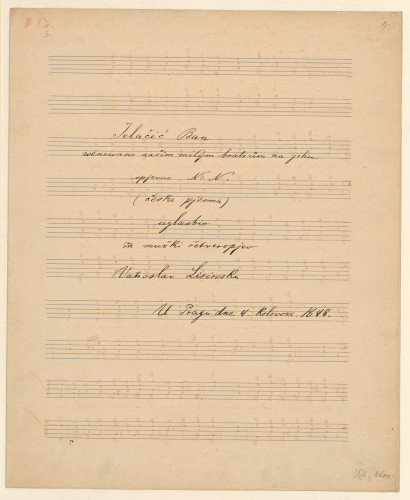 D 13.
3.
1.
Jelačić Ban
věnováno našim milým bratrům na jihu
spjevao N. N.
(česka pjesma)
uglasbio
za mužki četveropjev
Vatroslav Lisinski
U Pragu dne 4. kolovoza 1848.